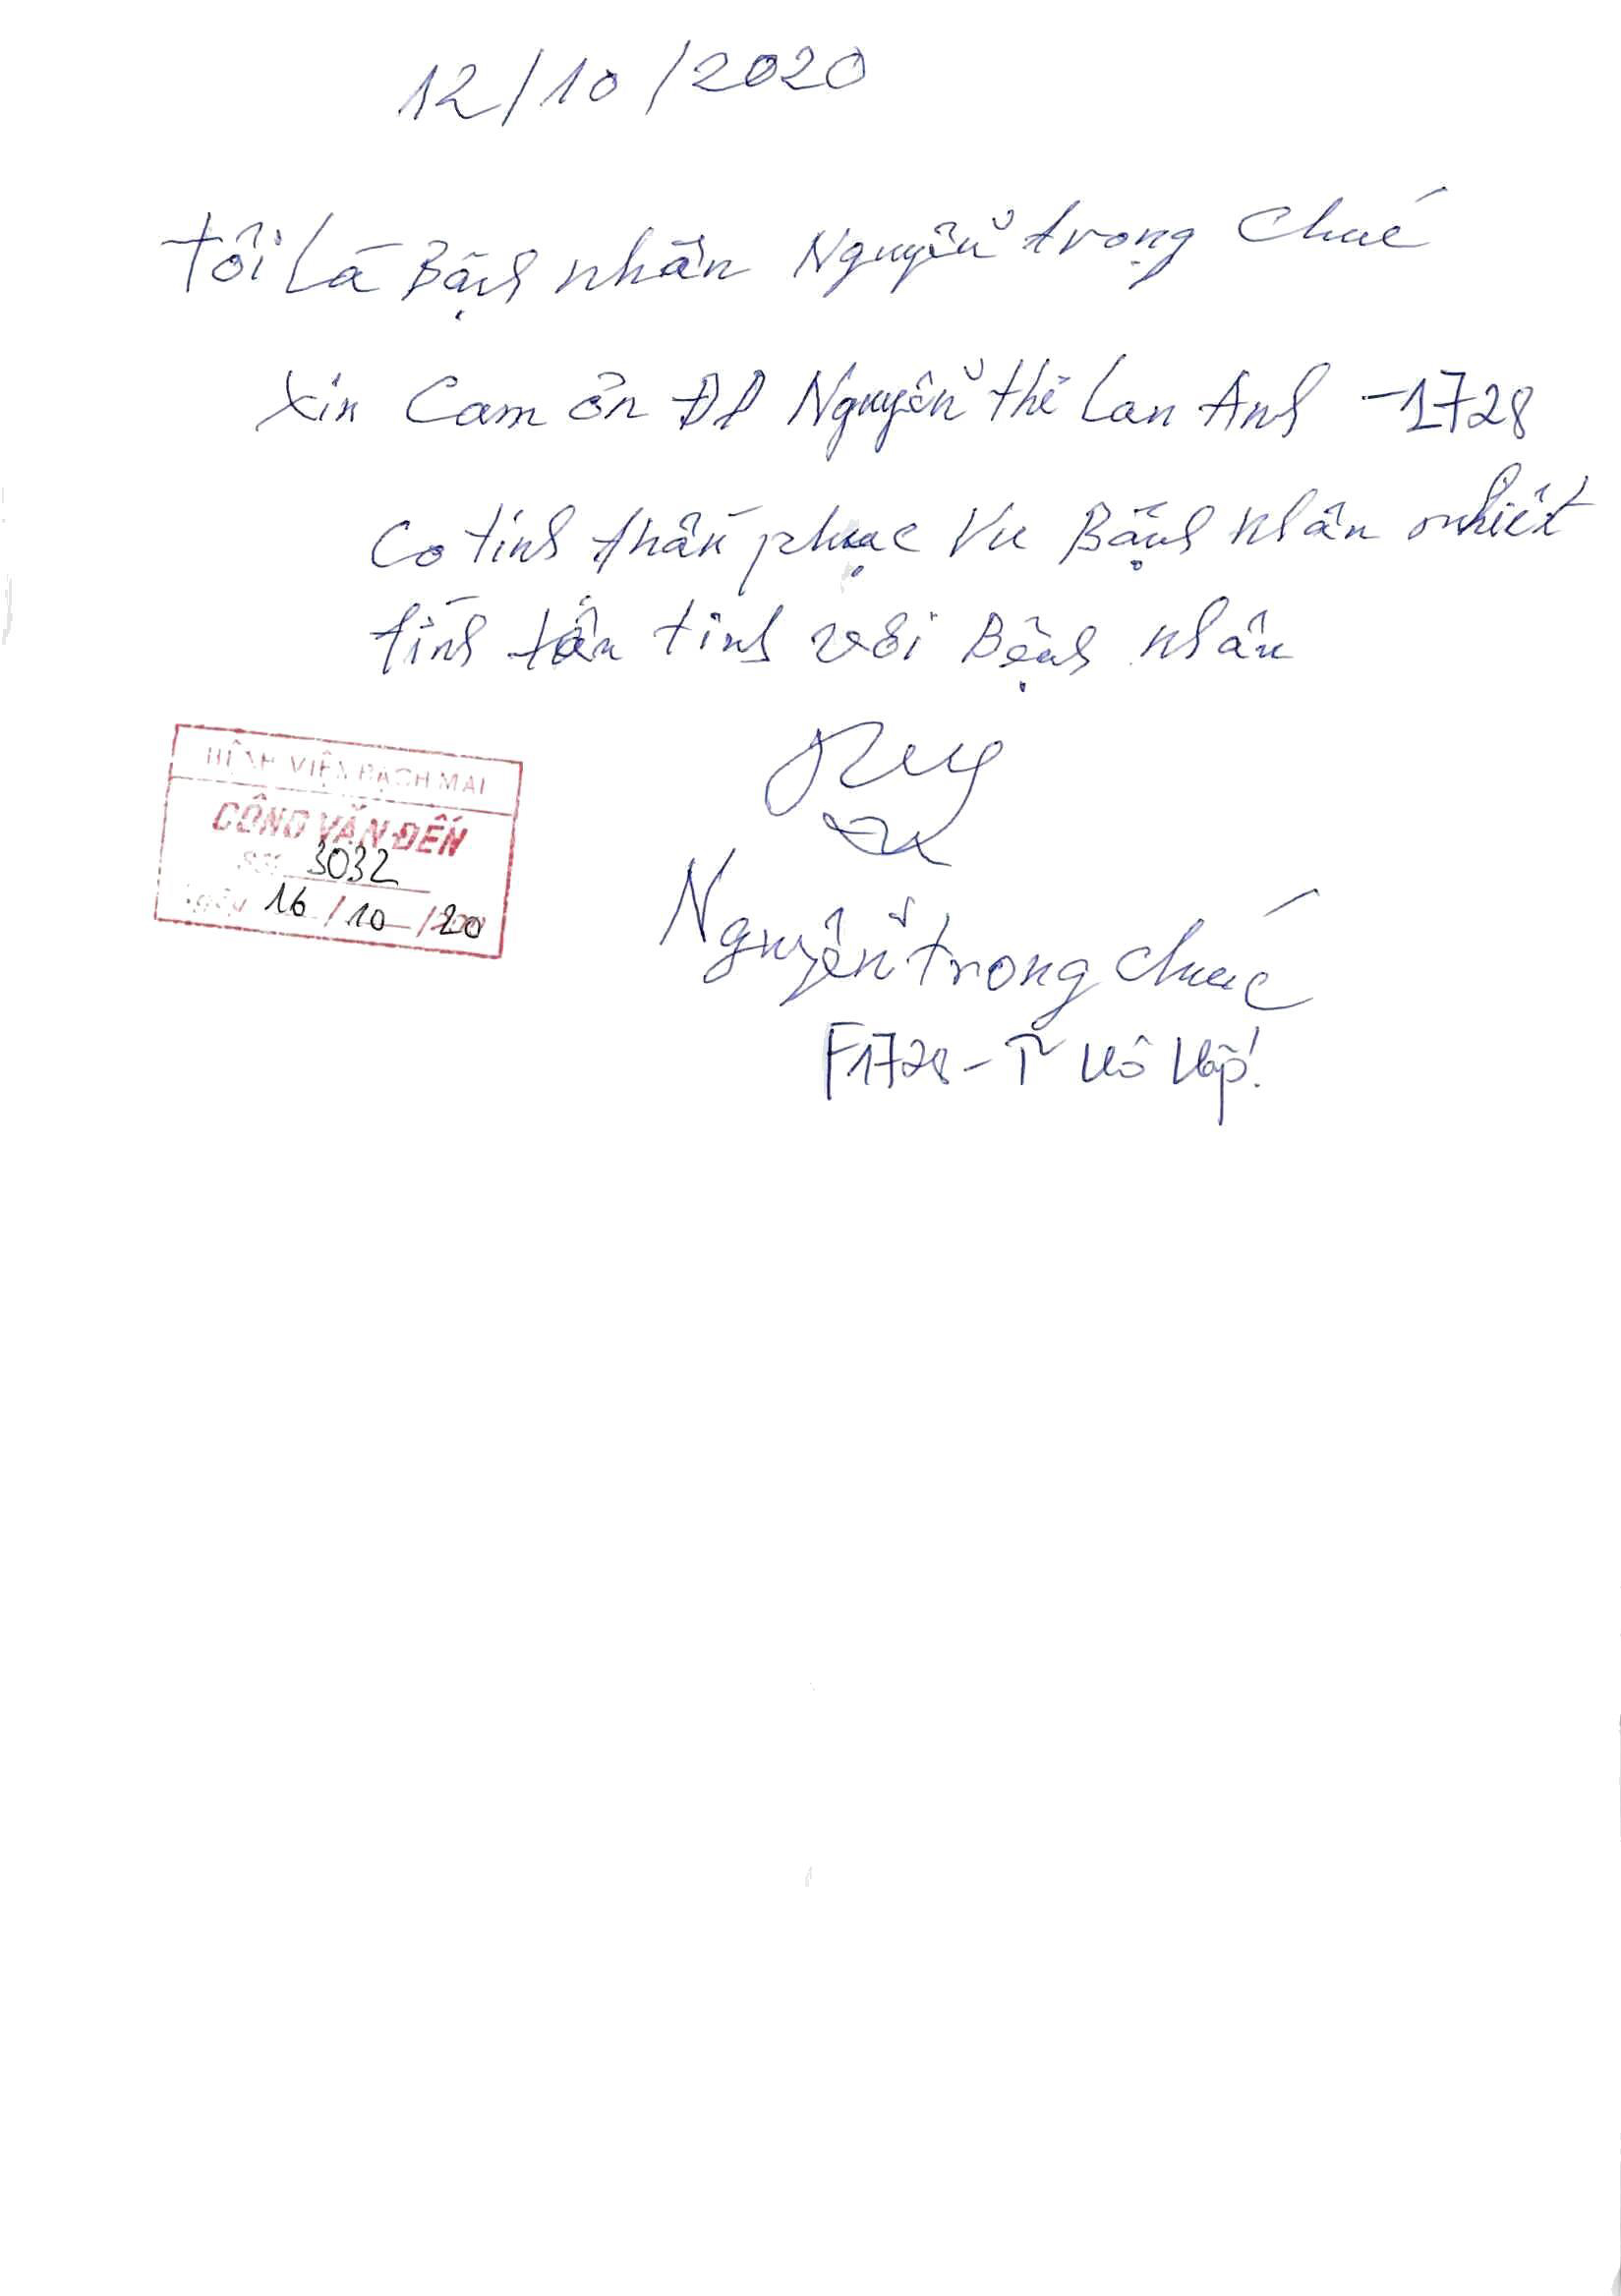 12/10/2020
Tôi Là Bệnh nhân Nguyễn trọng Chúc
Xin Cam ơn ĐD Nguyễn thị Lan Anh - 1728
Co tinh thần phục Vu Bệnh nhân nhiêt
tình tận tinh với Bệnh nhân
BỆNH VIỆN BẠCH MAI
CÔNG VĂN ĐẾN
Số: 3032
Ngày 16/10/2020
Nguyễn trong Chúc
F1728 - T Hô Hấp!